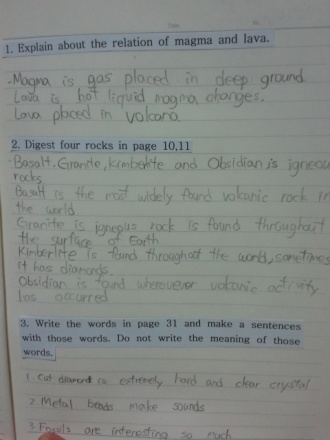 1. Explain about the relation of magma and lava.
-Magma is gas placed in deep ground.
Lava is hot liquid magma changes.
Lava placed in volcano.
2. Digest four rocks in page 10,11
-Basalt, Granite, kimberlite and Obsidian is igneou
rocks
Basalt is the most widely found volcanic rock in
the world.
Granite is igneous rock is found throughout
the surface of Earth
Kimberlite is found throughout the world, sometimes
it has diamonds.
Obsidian is found whereever volcanic activity
has occurred
3. Write the words in page 31 and make a sentences
with those words. Do not write the meaning of those
words.
1. Cut diamond is extremely hard and clear crystal
2. Metal beads make sounds
3. Fossils are interesting so much